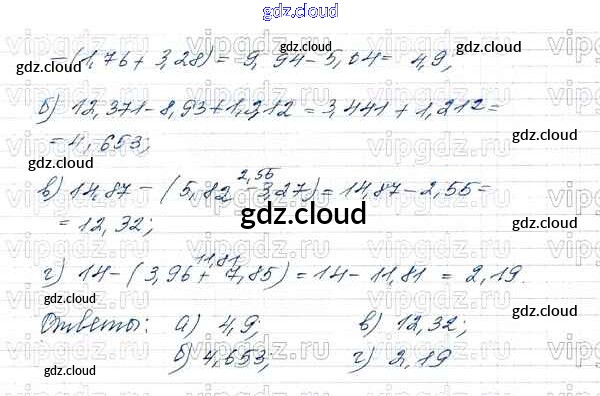 gdz.cloud
- (1,76 + 3,28) = 9,94 - 5,04 = 4,9;
б) 12,371 - 8,93 + 1,212 = 3,441 + 1,212 =
= 4,653;
2,55
в) 14,87 - (5,82 - 3,27) = 14,87 - 2,55 =
= 12,32;
11,81
г) 14 - (3,96 + 7,85) = 14 - 11,81 = 2,19.
Ответы: а) 4,9; в) 12,32;
б) 4,653; г) 2,19
gdz.cloud
vipgdz.ru